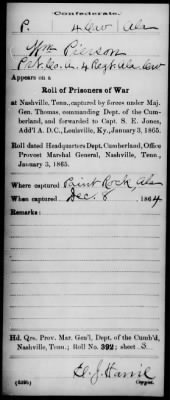 Confederate.
P. 4 Cav Ala
Wm Pierson
Pvt, Co. A, 4 Regt Ala Cav
Appears on a
Roll of Prisoners of War
at Nashville, Tenn., captured by forces under Maj.
Gen. Thomas, commanding Dept. of the Cum-
berland, and forwarded to Capt. S. E. Jones,
Add'l A. D. C., Louisville, Ky., January 3, 1865.
Roll dated Headquarters Dept. Cumberland, Office
Provost Marshal General, Nashville, Tenn.,
January 3, 1865.
Where captured Paint Rock Ala
When captured Dec. 8, 1864
Remarks:
Hd. Qrs. Prov. Mar. Gen'l, Dept. of the Cumb'd,
Nashville, Tenn.; Roll No. 392; sheet 3
Copyist.